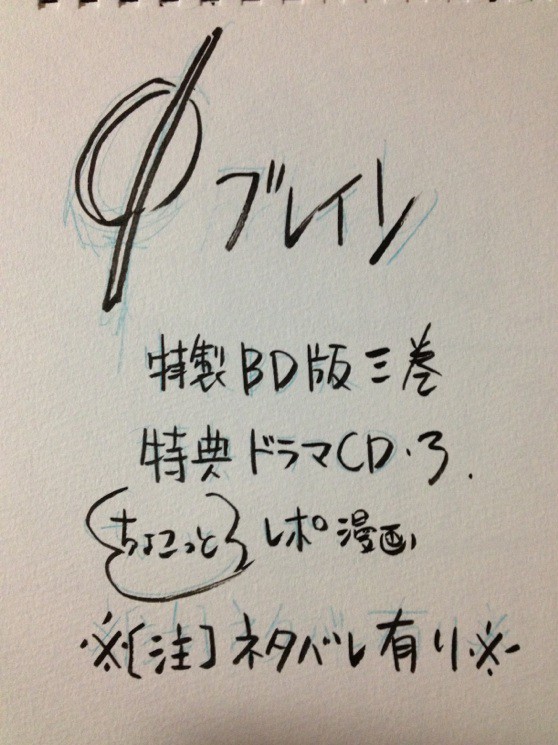 φブレイン
特製BD版三巻
特典ドラマCD・3.
ちょこっとレポ漫画
※[注]ネタバレ有り※